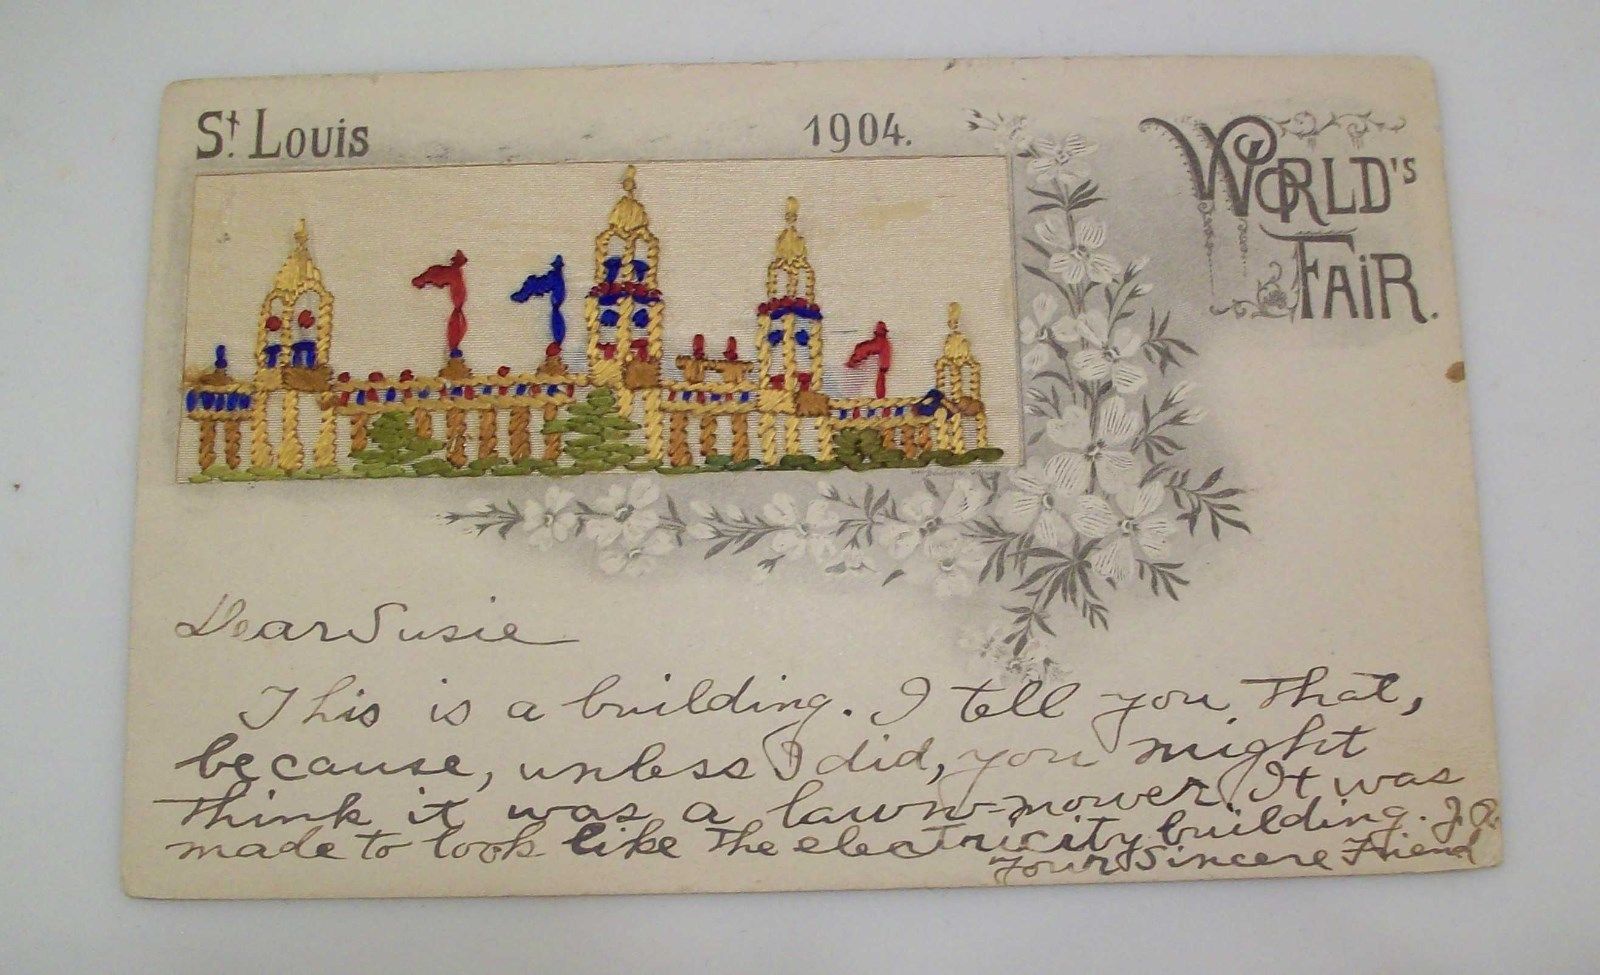 St. Louis 1904.
World's
Fair.
Dear Susie
This is a building. I tell you that,
because, unless I did, you might
think it was a lawn-mower. It was
made to look like the electricity building. J.
Your Sincere Friend